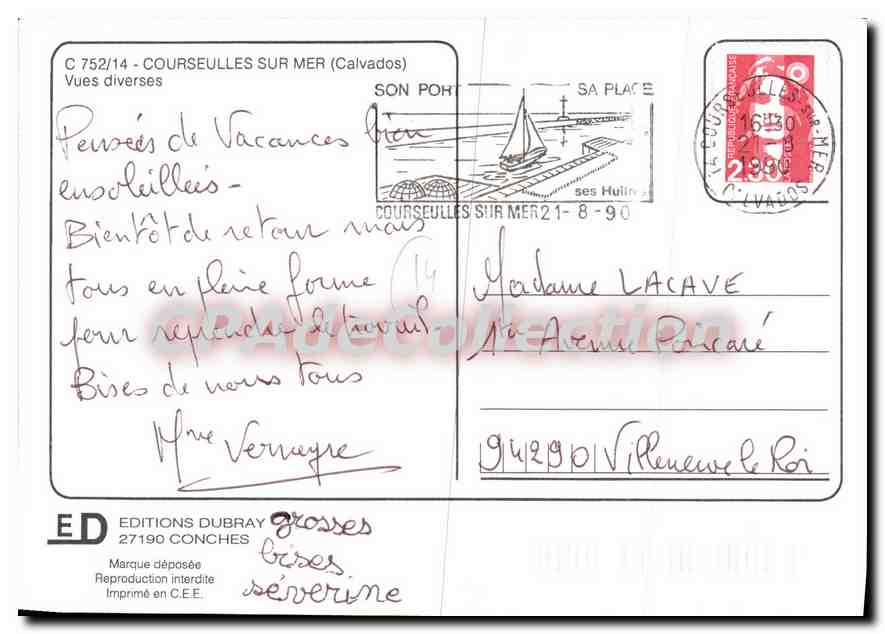 C 752/14 - COURSEULLES SUR MER (Calvados)
Vues diverses
SON PORT SA PLAGE
ses Huîtres
COURSEULLES SUR MER 21-8-90
REPUBLIQUE FRANÇAISE
2.30
14 COURSEULLES-SUR-MER
16H30
21-8
1990
CALVADOS
Pensées de Vacances bien
ensoleillées -
Bientôt de retour mais
tous en pleine forme
pour reprendre le travail
Bises de nous tous
Mme Vernayre
14
Madame LACAVE
Avenue Poncaré
94290 Villeneuve le Roi
CPAdeCollection
ED
EDITIONS DUBRAY
27190 CONCHES
Marque déposée
Reproduction interdite
Imprimé en C.E.E.
grosses
bises
séverine